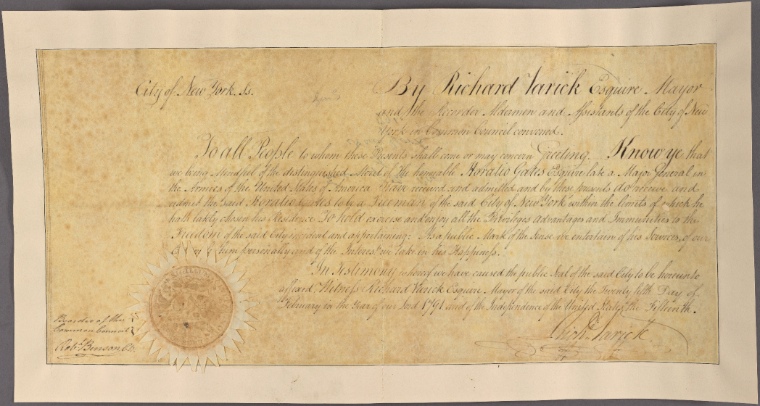 City of New York, Ss.
By Richard Varick Esquire Mayor
and the Recorder Aldermen and Assistants of the City of New
York in Common Council convened.
To all People to whom these Presents shall come or may concern Greeting. Know ye that
we being mindful of the distinguished Merit of the honorable Horatio Gates Esquire late a Major General in
the Armies of the United States of America Have received and admitted and by these presents do receive and
admit the said Horatio Gates to be a Freeman of the said City of New York within the Limits of which he
hath lately chosen his Residence To hold exercise and enjoy all the Privileges advantages and Immunities to the
Freedom of the said City incident and appertaining: As a public Mark of the Sense we entertain of his Services, of our
personally and of the Interest we take in his Happiness.
In Testimony whereof we have caused the public Seal of the said City to be hereunto
affixed. Witness Richard Varick Esquire Mayor of the said City the Twenty fifth Day of
February in the Year of our Lord 1791 and of the Independence of the United States the Fifteenth.
Rich. Varick
By order of the
Common Council
Rob. Benson Clk